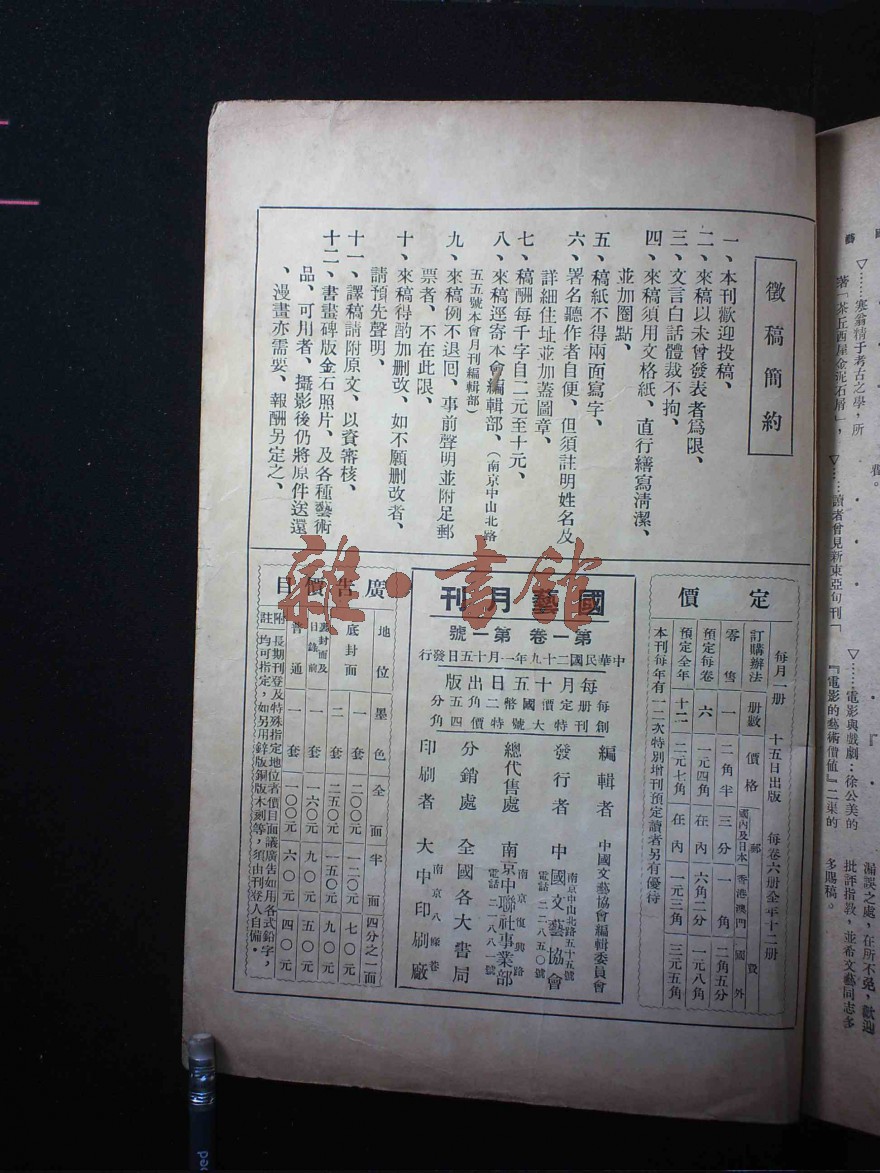 徵稿簡約
一、本刊歡迎投稿、
二、來稿以未曾發表者爲限、
三、文言白話體裁不拘、
四、來稿須用文格紙、直行繕寫清潔、
並加圈點、
五、稿紙不得兩面寫字、
六、署名聽作者自便、但須註明姓名及
詳細住址並加蓋圖章、
七、稿酬每千字自二元至十元、
八、來稿逕寄本會編輯部、（南京中山北路
五五號本會月刊編輯部）
九、來稿例不退回、事前聲明並附足郵
票者、不在此限、
十、來稿得酌加刪改、如不願刪改者、
請預先聲明、
十一、譯稿請附原文、以資審核、
十二、書畫碑版金石照片、及各種藝術
品、可用者、攝影後仍將原件送還
、漫畫亦需要、報酬另定之、
定價
每月一册 十五日出版 每卷六册全年十二册
訂購辦法 册數 價格 郵費
國內及日本 香港澳門 國外
零售 一 二角半 三分 一角 二角五分
預定每卷 六 一元四角 在內 六角二分 一元八角
預定全年 十二 二元七角 在內 一元三角 三元五角
本刊每年有一二次特別增刊預定讀者另有優待
國藝月刊
第一卷第一號
中華民國二十九年一月十五日發行
每月十五日出版
每册定價國幣二角五分
創刊特大號特價四角
編輯者 中國文藝協會編輯委員會
發行者 中國文藝協會
南京中山北路五十五號
電話 二二八五〇號
總代售處 南京中聯社事業部
南京復興路
電話 二一八八一號
分銷處 全國各大書局
印刷者 大中印刷廠
南京八條巷
廣告價目
地位 墨色 全面 半面 四分之一面
底封面 一套 二〇〇元 一二〇元 七〇元
二套 二五〇元 一五〇元 九〇元
裏封面及目錄前 一套 一六〇元 九〇元 五〇元
普通 一套 一〇〇元 六〇元 四〇元
附註 長期刊登及特殊指定地位者價目面議廣告如用各式鉛字，
均可指定，如另用鋅版銅版木刻等，須由刊登人自備。
雜·書館
藝
▽……寒翁精于考古之學，所
著「茶丘西屋金泥石屑」，
▽……讀者曾見新東亞旬刊「
▽……電影與戲劇：徐公美的
『電影的藝術價值』二渠的
漏誤之處，在所不免，歡迎
批評指教，並希文藝同志多
多賜稿。
ped